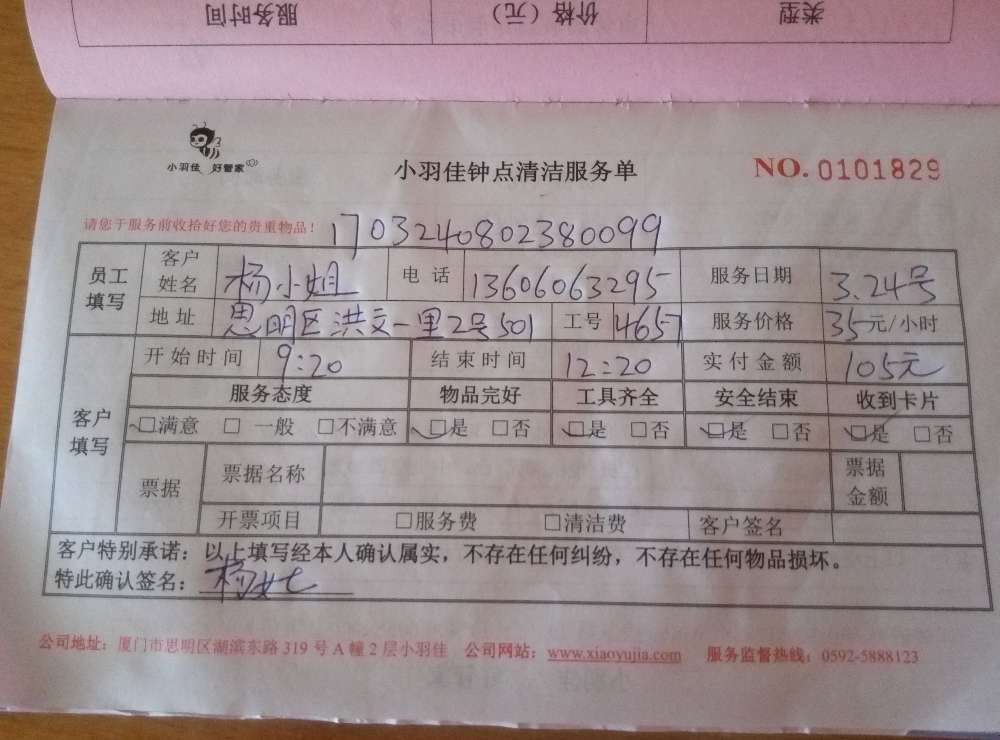 服务时间 价格（元） 类型
小羽佳 好管家
小羽佳钟点清洁服务单
NO. 0101829
请您于服务前收拾好您的贵重物品！ 1703240802380099
员工填写 客户姓名 杨小姐 电话 13606063295 服务日期 3.24号
地址 思明区洪文一里2号501 工号 4657 服务价格 35元/小时
客户填写 开始时间 9:20 结束时间 12:20 实付金额 105元
服务态度 物品完好 工具齐全 安全结束 收到卡片
☑满意 □一般 □不满意 ☑是 □否 ☑是 □否 ☑是 □否 ☑是 □否
票据 票据名称 票据金额
开票项目 □服务费 □清洁费 客户签名
客户特别承诺：以上填写经本人确认属实，不存在任何纠纷，不存在任何物品损坏。
特此确认签名：杨女士
公司地址：厦门市思明区湖滨东路 319 号 A 幢 2 层小羽佳 公司网站：www.xiaoyujia.com 服务监督热线：0592-5888123